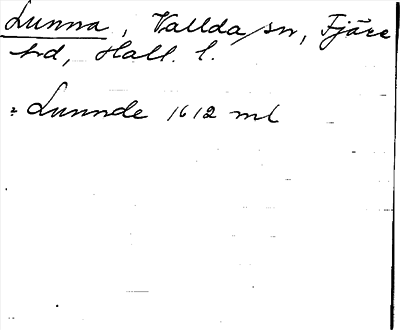 Lunna, Vallda sn, Fjäre
hd, Hall. l.
: Lunnde 1612 ml